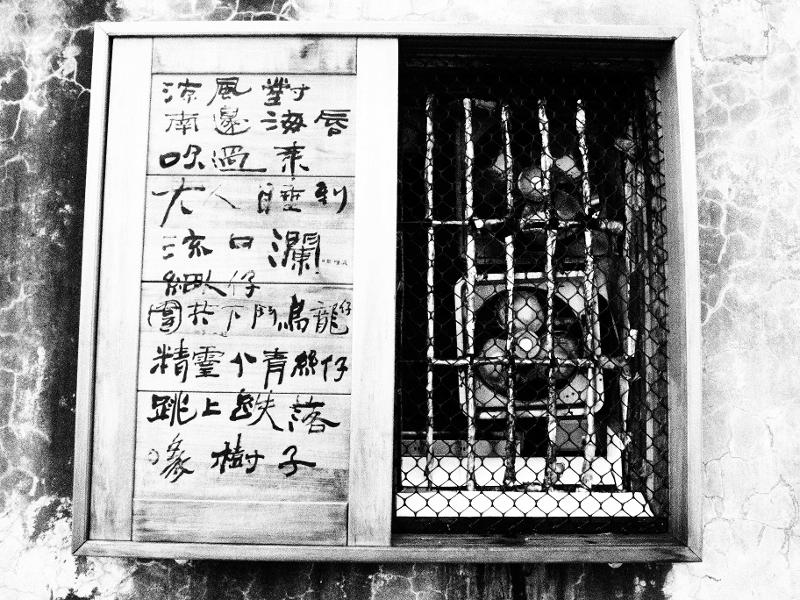 涼風對
南邊海唇
吹過來
大人睡到
流口瀾
細人仔
圍共下鬥烏龍仔
精靈个青絲仔
跳上跌落
像樹子